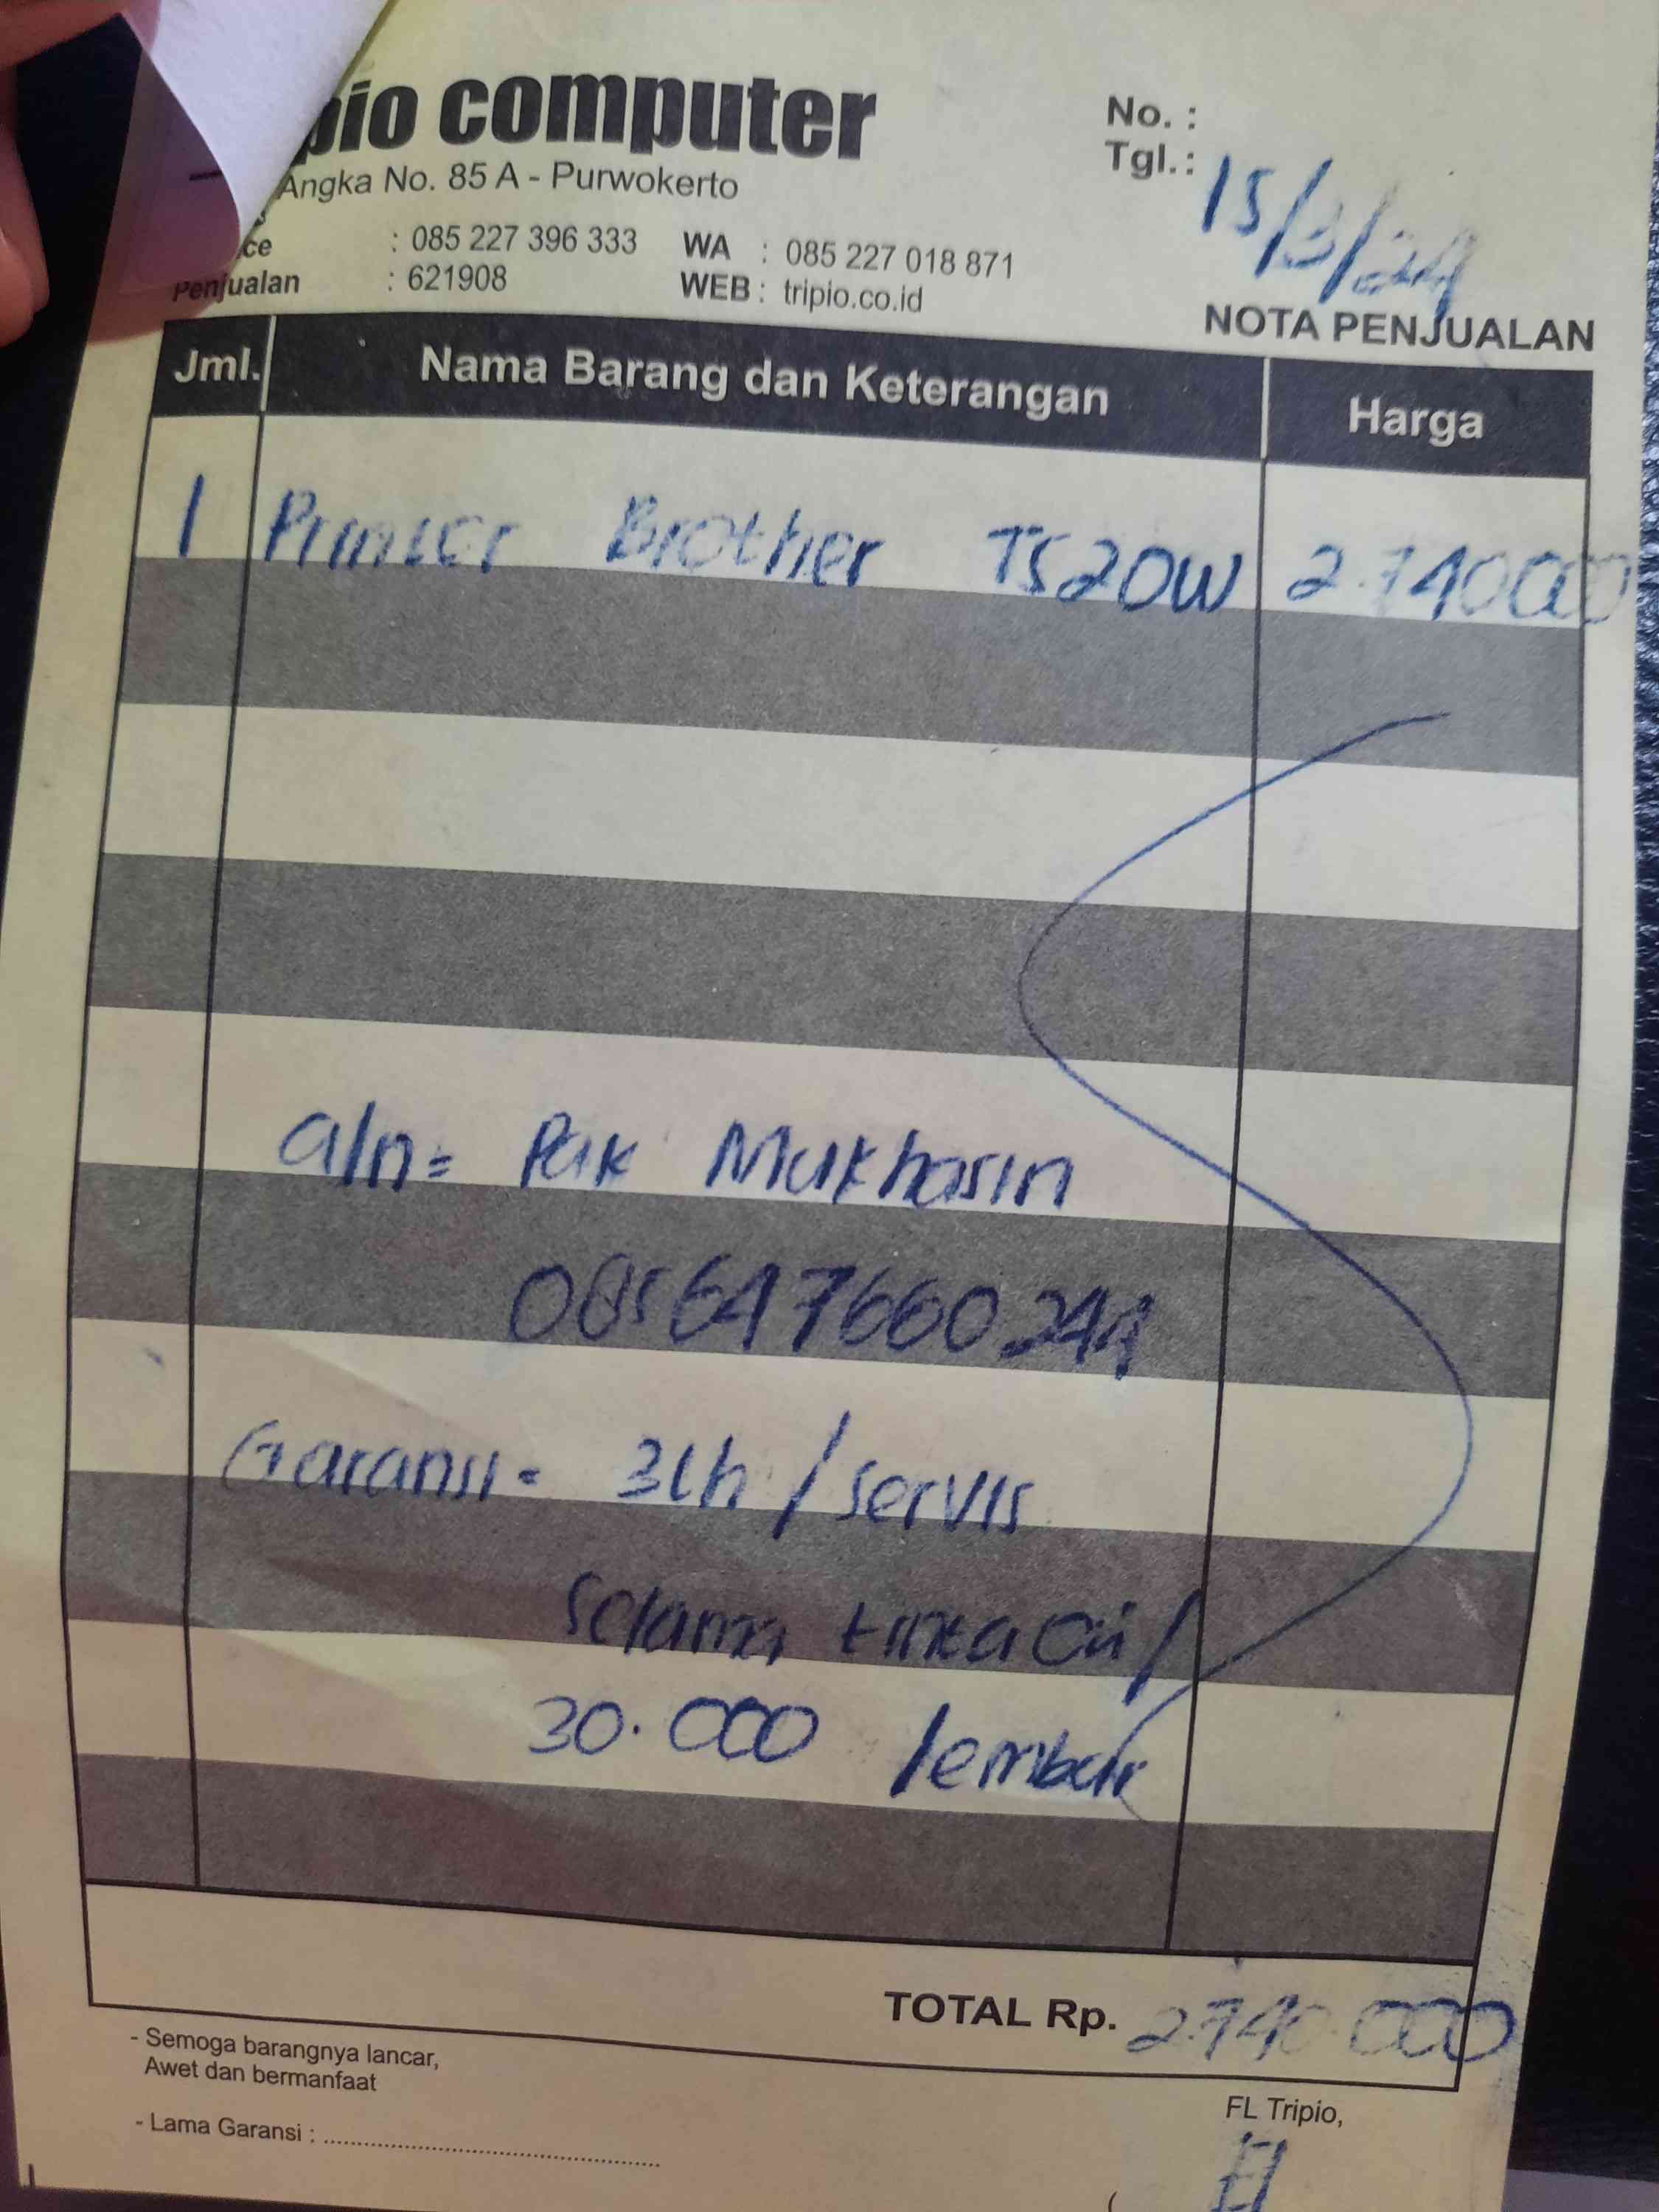 pio computer
Angka No. 85 A - Purwokerto
ce : 085 227 396 333 WA : 085 227 018 871
Penjualan : 621908 WEB : tripio.co.id
No. :
Tgl. : 15/3/24
NOTA PENJUALAN
Jml. Nama Barang dan Keterangan Harga
1 Printer Brother T520W 2.740000
a/n = Pak Mukhasin
085647660244
Garansi = 3th / servis
selama tinta ori /
30.000 lembar
TOTAL Rp. 2.740.000
- Semoga barangnya lancar,
Awet dan bermanfaat
- Lama Garansi : ........................
FL Tripio,